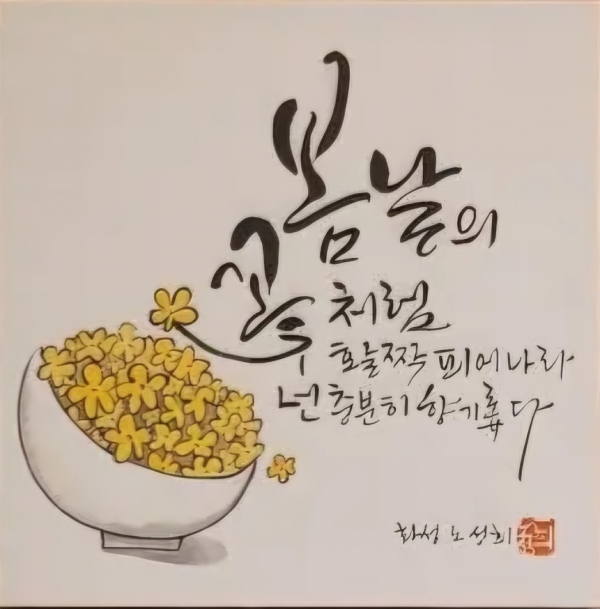 봄날의
꽃처럼
활짝 피어나라
넌 충분히 향기롭다
화성 노성희